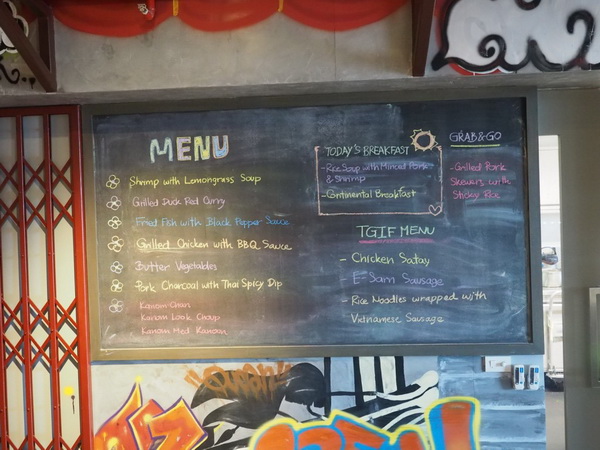 MENU
Shrimp with Lemongrass Soup
Grilled Duck Red Curry
Fried Fish with Black Pepper Sauce
Grilled Chicken with BBQ Sauce
Butter Vegetables
Pork Charcoal with Thai Spicy Dip
Kanom Chan
Kanom Look Choup
Kanom Med Kanoon
TODAY'S BREAKFAST
- Rice Soup with Minced Pork
& Shrimp
- Continental Breakfast
TGIF MENU
- Chicken Satay
- E-Sarn Sausage
- Rice Noodles wrapped with
Vietnamese Sausage
GRAB&GO
- Grilled Pork
Skewers with
Sticky Rice